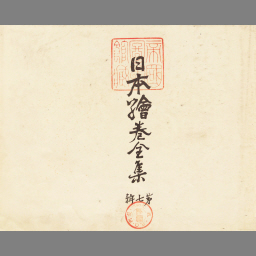 日本繪卷全集
第七輯